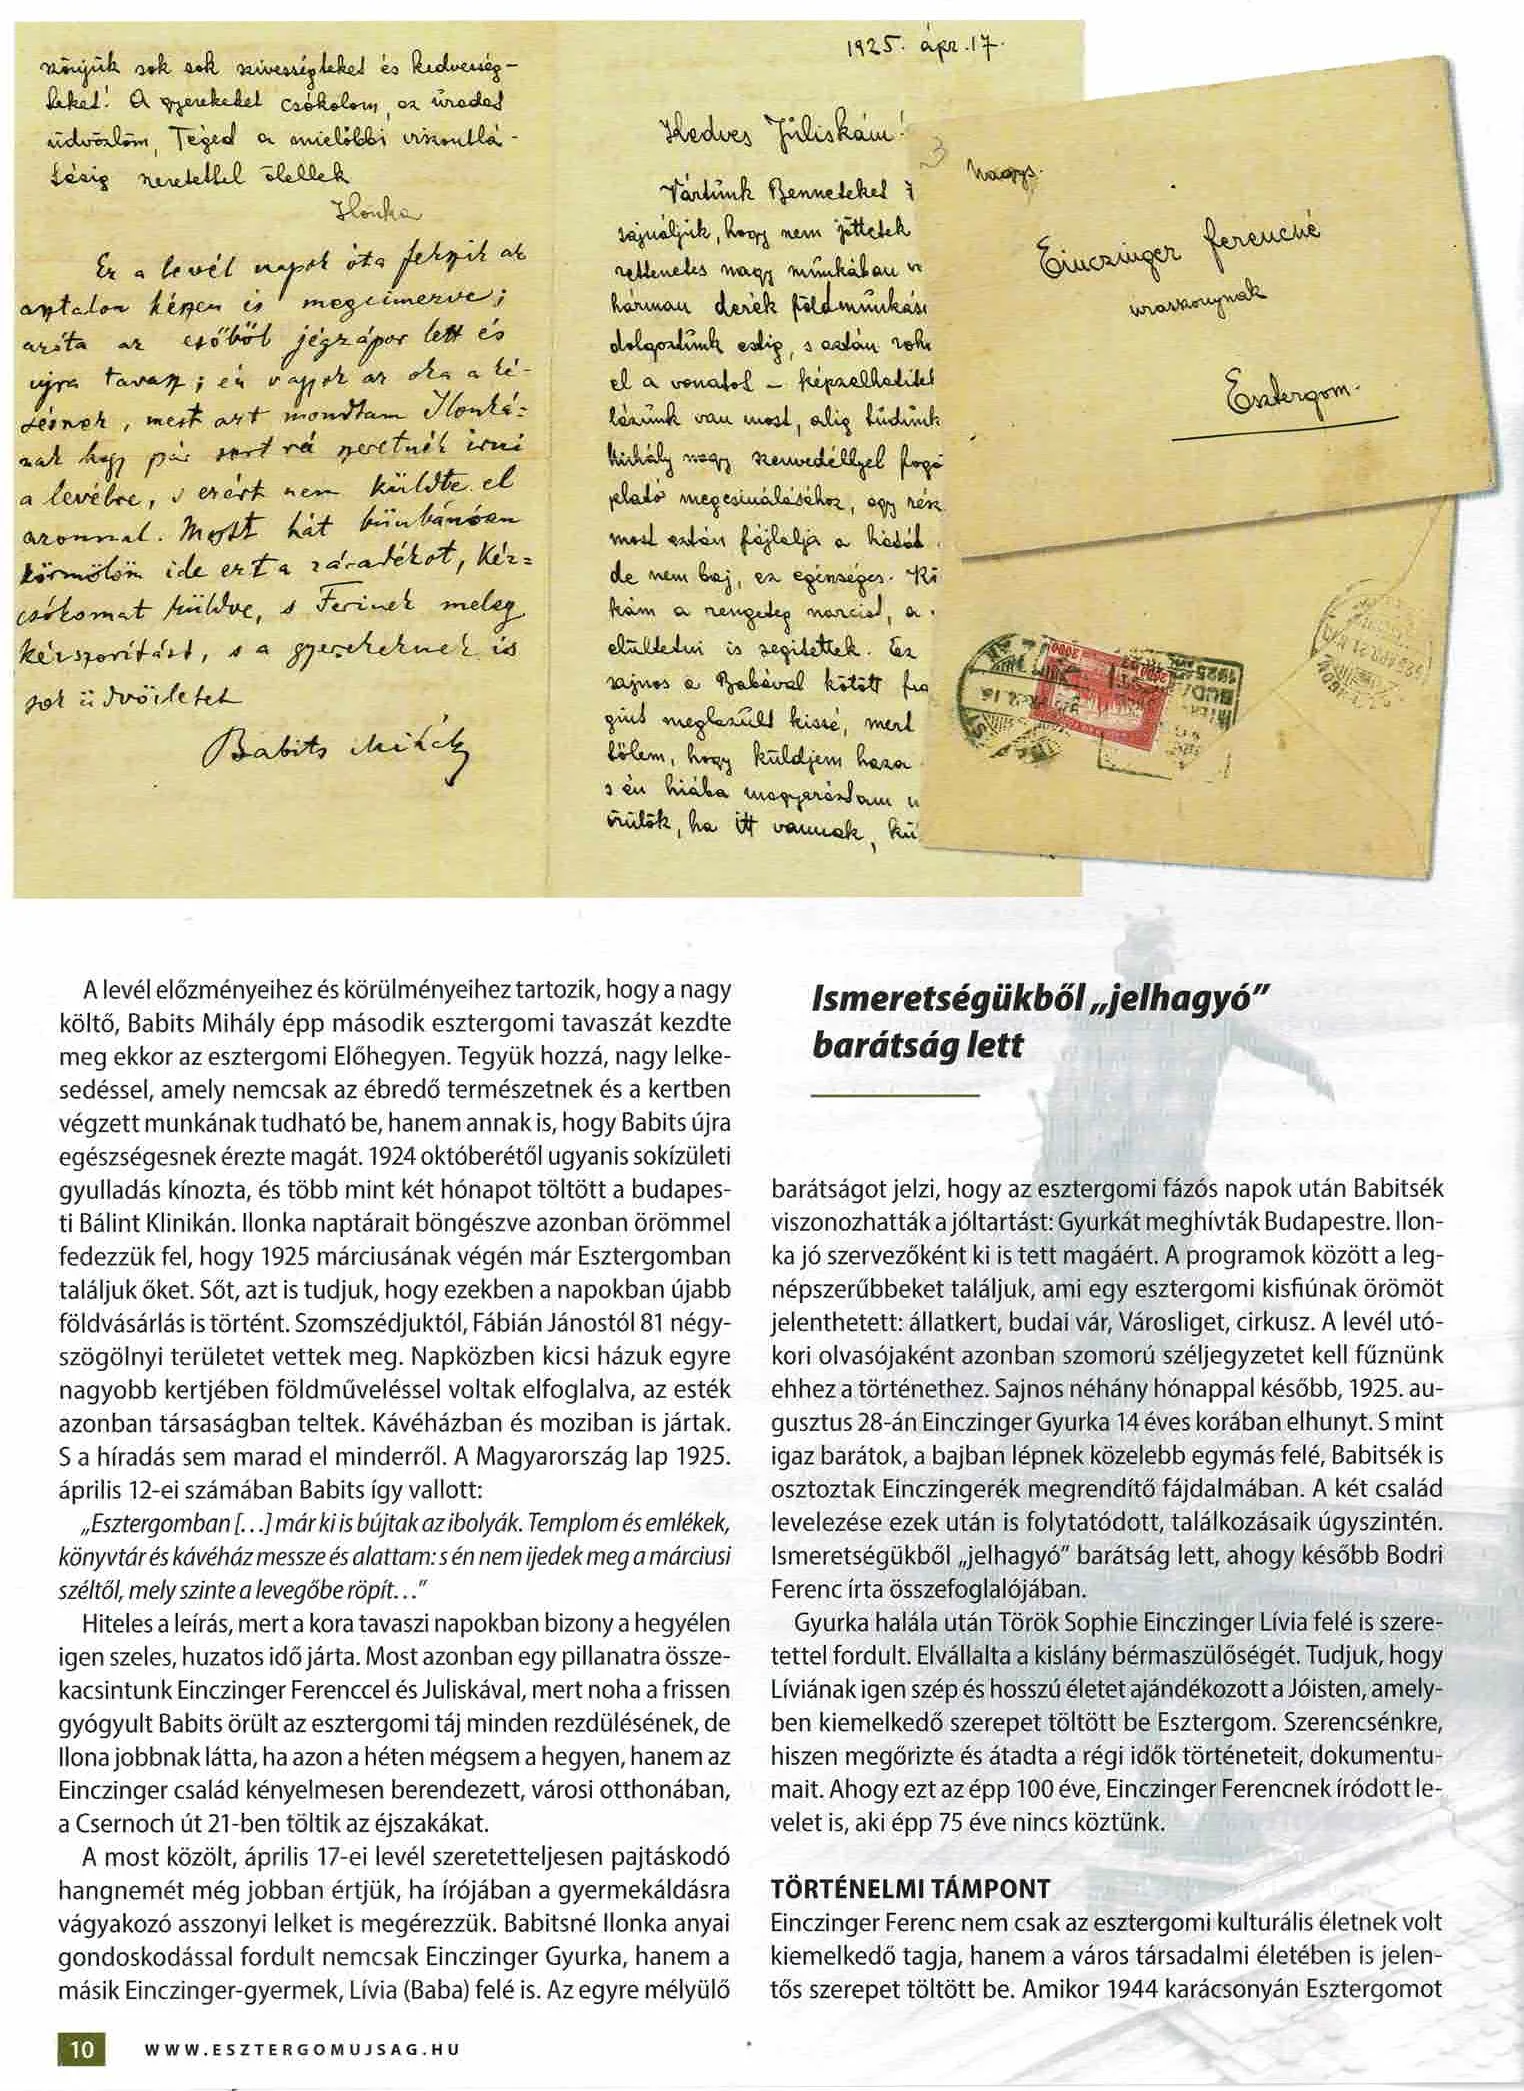 szönjük sok sok szivességteket és kedvesség-
teket! A gyerekeket csókolom, az uradat
üdvözlöm, Téged a mielőbbi viszontlá-
tásig szeretettel ölellek
Ilonka
Ez a levél napok óta fekszik az
asztalon készen és megcímezve;
azóta az esőből jégzápor lett és
ujra tavasz; én vagyok az oka a ké-
désnek, mert azt mondtam Ilonká-
nak hogy pár sort rá szeretnék irni
a levélre, s ezért nem küldte el
azonnal. Most hát bünbánóan
körmölöm ide ezt a záradékot, kéz=
csókomat küldve, s Ferinek meleg
kézszorítást, s a gyerekeknek is
sok üdvözletet
Babits Mihály
1925. ápr. 17.
Kedves Juliskám!
Vártunk Benneteket
sajnáljuk, hogy nem jöttetek
rettenetes nagy munkában
hárman derék földmunkás
dolgoztunk estig, s aztán
el a vonatot – képzelhetitek
lázunk van most, alig tudunk
Mihály nagy szenvedéllyel fogo
megcsinálásához, egy rész
most aztán fájlalja a hátát
de nem baj, ez egészséges.
kám a rengeteg narcist, a
elültetni is segítettek. Ez
sajnos a Babával kötött
meglazult kissé, mert
tőlem, hogy küldjem haza
s én hiába magyaráztam
örülök, ha itt vannak,
3
Nagys.
Einczinger Ferencné
uraszonynak
Esztergom.
2000
1925
BUDA
A levél előzményeihez és körülményeihez tartozik, hogy a nagy
költő, Babits Mihály épp második esztergomi tavaszát kezdte
meg ekkor az esztergomi Előhegyen. Tegyük hozzá, nagy lelke-
sedéssel, amely nemcsak az ébredő természetnek és a kertben
végzett munkának tudható be, hanem annak is, hogy Babits újra
egészségesnek érezte magát. 1924 októberétől ugyanis sokízületi
gyulladás kínozta, és több mint két hónapot töltött a budapes-
ti Bálint Klinikán. Ilonka naptárait böngészve azonban örömmel
fedezzük fel, hogy 1925 márciusának végén már Esztergomban
találjuk őket. Sőt, azt is tudjuk, hogy ezekben a napokban újabb
földvásárlás is történt. Szomszédjuktól, Fábián Jánostól 81 négy-
szögölnyi területet vettek meg. Napközben kicsi házuk egyre
nagyobb kertjében földműveléssel voltak elfoglalva, az esték
azonban társaságban teltek. Kávéházban és moziban is jártak.
S a híradás sem marad el minderről. A Magyarország lap 1925.
április 12-ei számában Babits így vallott:
„Esztergomban [...] már ki is bújtak az ibolyák. Templom és emlékek,
könyvtár és kávéház messze és alattam: s én nem ijedek meg a márciusi
széltől, mely szinte a levegőbe röpít..."
Hiteles a leírás, mert a kora tavaszi napokban bizony a hegyélen
igen szeles, huzatos idő járta. Most azonban egy pillanatra össze-
kacsintunk Einczinger Ferenccel és Juliskával, mert noha a frissen
gyógyult Babits örült az esztergomi táj minden rezdülésének, de
Ilona jobbnak látta, ha azon a héten mégsem a hegyen, hanem az
Einczinger család kényelmesen berendezett, városi otthonában,
a Csernoch út 21-ben töltik az éjszakákat.
A most közölt, április 17-ei levél szeretetteljesen pajtáskodó
hangnemét még jobban értjük, ha írójában a gyermekáldásra
vágyakozó asszonyi lelket is megérezzük. Babitsné Ilonka anyai
gondoskodással fordult nemcsak Einczinger Gyurka, hanem a
másik Einczinger-gyermek, Lívia (Baba) felé is. Az egyre mélyülő
Ismeretségükből „jelhagyó"
barátság lett
barátságot jelzi, hogy az esztergomi fázós napok után Babitsék
viszonozhatták a jóltartást: Gyurkát meghívták Budapestre. Ilon-
ka jó szervezőként ki is tett magáért. A programok között a leg-
népszerűbbeket találjuk, ami egy esztergomi kisfiúnak örömöt
jelenthetett: állatkert, budai vár, Városliget, cirkusz. A levél utó-
kori olvasójaként azonban szomorú széljegyzetet kell fűznünk
ehhez a történethez. Sajnos néhány hónappal később, 1925. au-
gusztus 28-án Einczinger Gyurka 14 éves korában elhunyt. S mint
igaz barátok, a bajban lépnek közelebb egymás felé, Babitsék is
osztoztak Einczingerék megrendítő fájdalmában. A két család
levelezése ezek után is folytatódott, találkozásaik úgyszintén.
Ismeretségükből „jelhagyó" barátság lett, ahogy később Bodri
Ferenc írta összefoglalójában.
Gyurka halála után Török Sophie Einczinger Lívia felé is szere-
tettel fordult. Elvállalta a kislány bérmaszülőségét. Tudjuk, hogy
Líviának igen szép és hosszú életet ajándékozott a Jóisten, amely-
ben kiemelkedő szerepet töltött be Esztergom. Szerencsénkre,
hiszen megőrizte és átadta a régi idők történeteit, dokumentu-
mait. Ahogy ezt az épp 100 éve, Einczinger Ferencnek íródott le-
velet is, aki épp 75 éve nincs köztünk.
TÖRTÉNELMI TÁMPONT
Einczinger Ferenc nem csak az esztergomi kulturális életnek volt
kiemelkedő tagja, hanem a város társadalmi életében is jelen-
tős szerepet töltött be. Amikor 1944 karácsonyán Esztergomot
10 WWW.ESZTERGOMUJSAG.HU